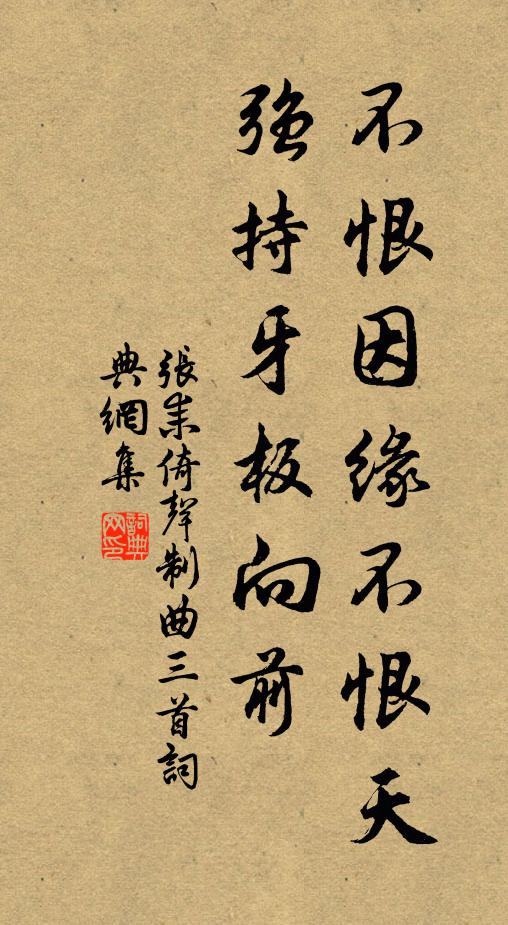 不恨因缘不恨天
强持牙板向前
張耒倚聲制曲三首詞
典網集
詞典网印